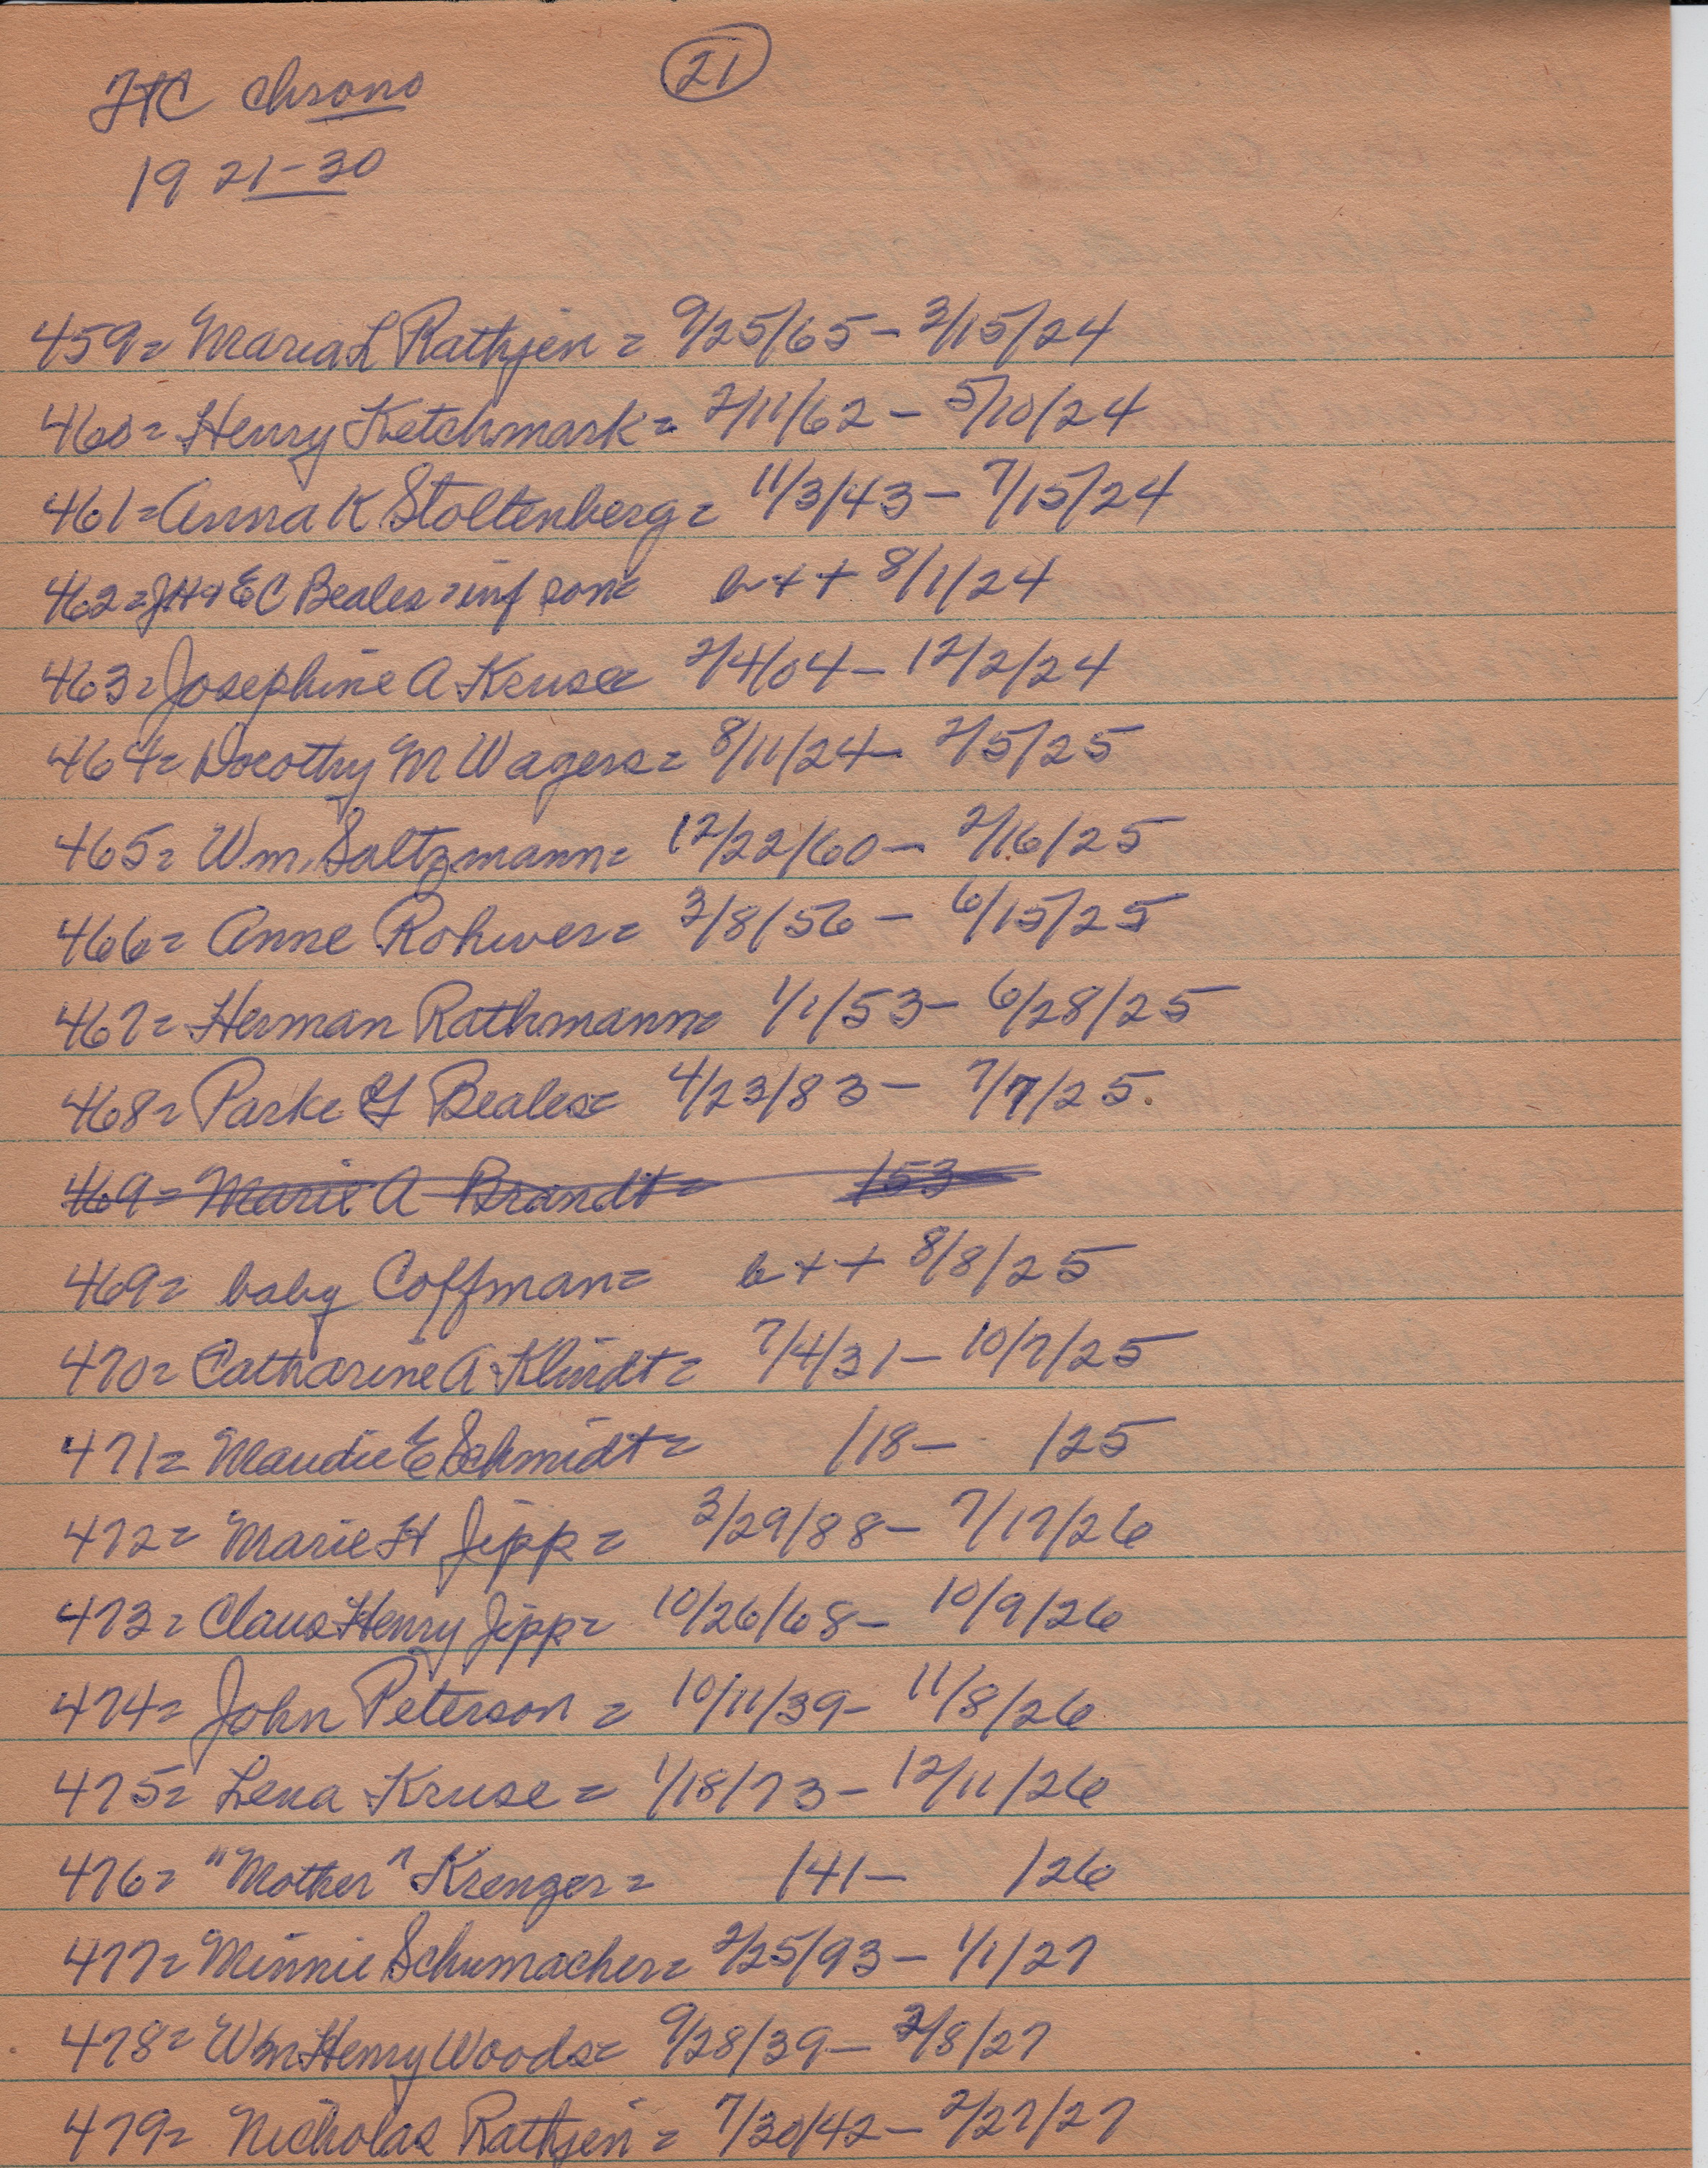 21
FTC chrono
1921-30
459= Maria L Rathjen = 9/25/65 - 3/15/24
460= Henry Ketchmark= 2/11/62 - 5/10/24
461= Anna K Stoltenberg= 11/3/43 - 7/15/24
462= JH+EC Beales=inf son= b++ 8/1/24
463= Josephine A Kruse= 2/4/04 - 12/2/24
464= Dorothy M Wagers= 8/11/24 - 2/5/25
465= Wm. Saltzmann= 12/22/60 - 2/16/25
466= Anne Rohwer= 3/8/56 - 6/15/25
467= Herman Rathmann= 1/1/53 - 6/28/25
468= Parke Y Beales= 4/23/83 - 7/7/25.
469= Marie A Brandt= /53
469= baby Coffman= b++ 8/8/25
470= Catharine A Klindt= 7/4/31 - 10/7/25
471= Maudie E Schmidt= /18 - /25
472= Marie H Jipp= 3/29/88 - 7/17/26
473= Claus Henry Jipp= 10/26/68 - 10/9/26
474= John Peterson = 10/11/39 - 11/8/26
475= Lena Kruse = 1/18/73 - 12/11/26
476= "Mother" Krenger= /41 - /26
477= Minnie Schumacher= 2/25/93 - 1/1/27
478= Wm Henry Woods= 9/28/39 - 2/8/27
479= Nicholas Rathjen = 7/30/42 - 2/27/27